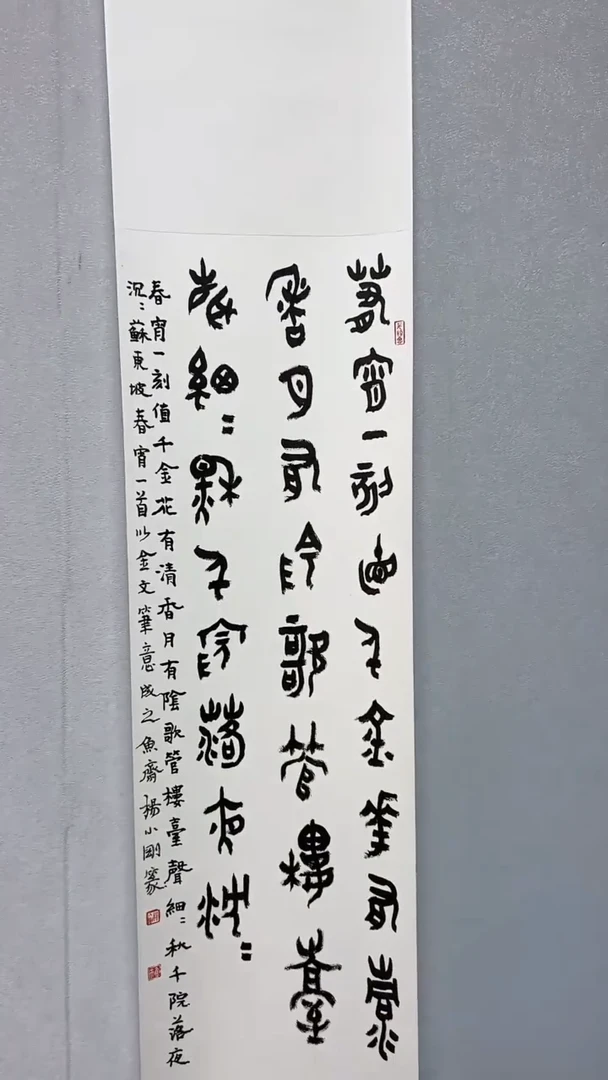 萅宵一刻直千金華有清
香月有陰歌管樓臺
聲細〻秋千院落夜沈〻
春宵一刻值千金花有清香月有陰歌管樓臺聲細〻秋千院落夜
沉〻蘇東坡春宵一首以金文筆意成之魚齋楊小剛篆